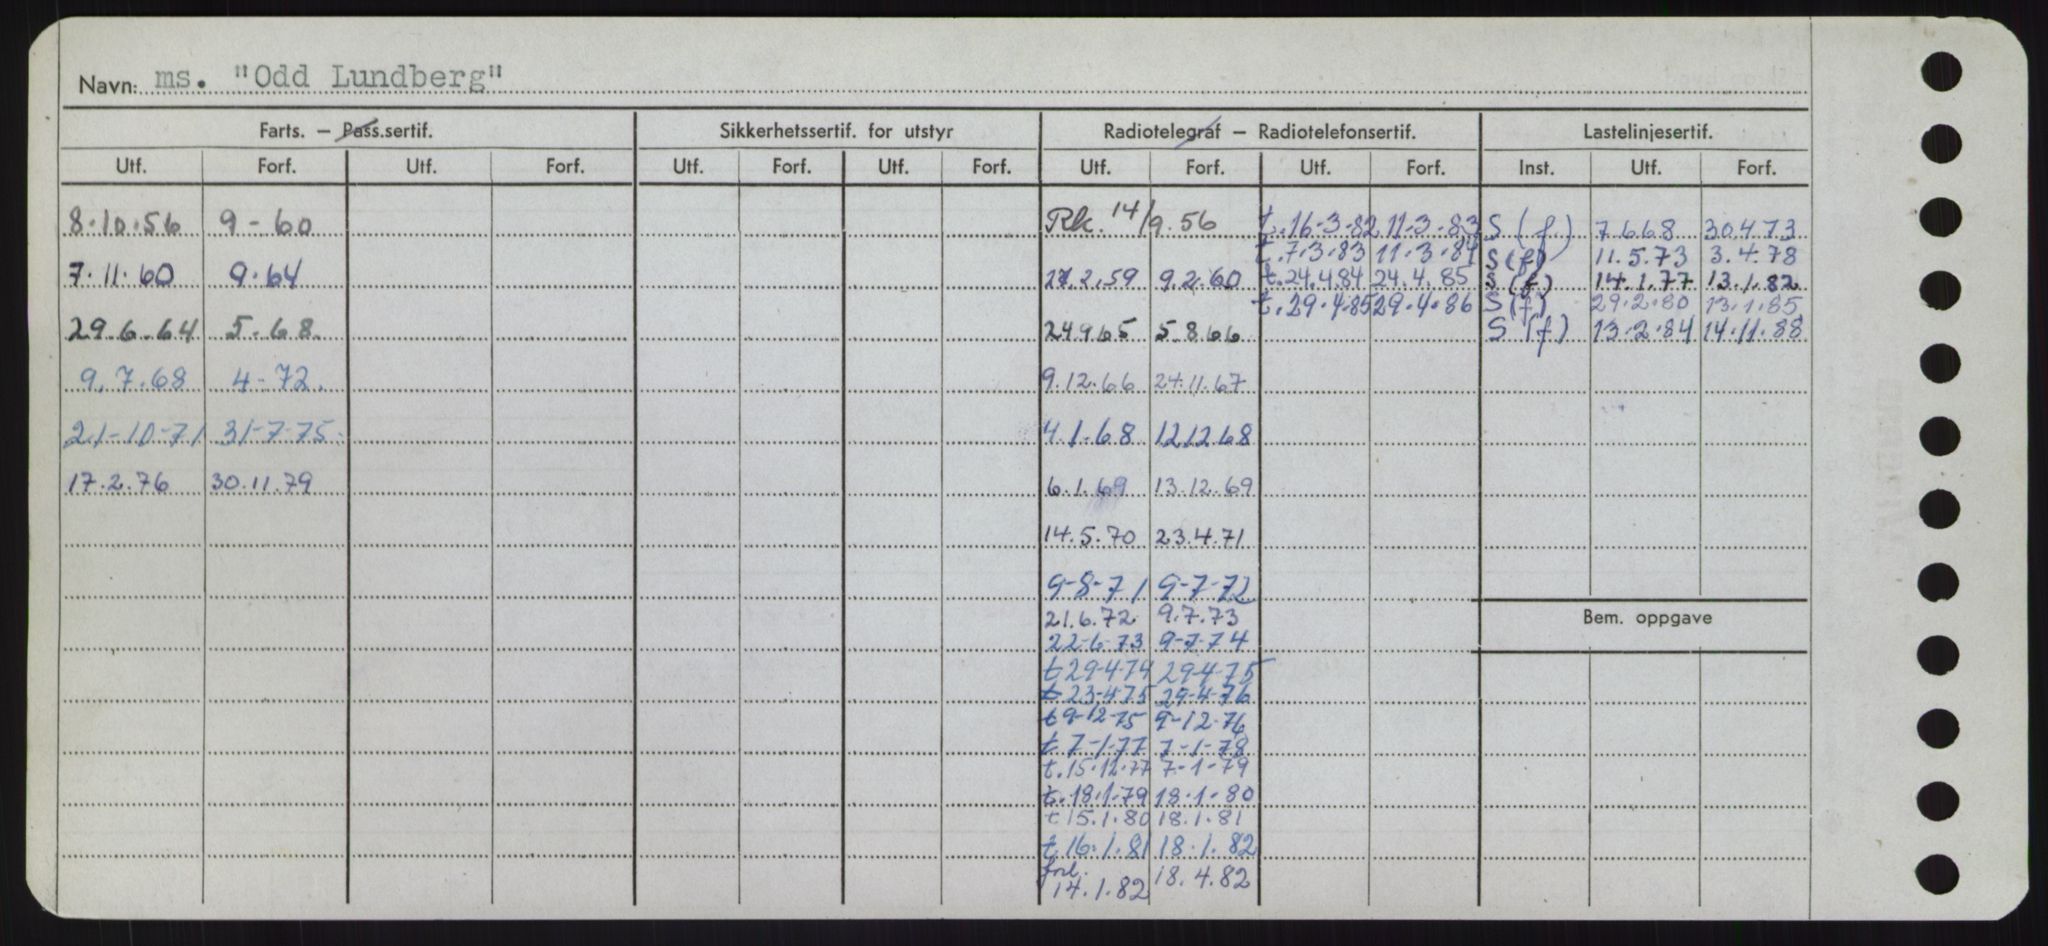 Navn: ms. "Odd Lundberg"
Farts. — Pass.sertif. Sikkerhetssertif. for utstyr Radiotelegraf — Radiotelefonsertif. Lastelinjesertif.
Utf. Forf. Utf. Forf. Utf. Forf. Utf. Forf. Utf. Forf. Utf. Forf. Inst. Utf. Forf.
8.10.56 9-60 Rk. 14/9.56 t.16-3-82 11-3-83 S (f) 7.6.68 30.4.73
t.7.3.83 11.3.84 S (f) 11.5.73 3.4.78
7.11.60 9.64 2.59 9.2.60 t.24.4.84 24.4.85 S (f) 14.1.77 13.1.82
t.29.4.85 29.4.86 S (f) 29.2.80 13.1.85
29.6.64 5.68 24.9.65 5.8.66 S (f) 13.2.84 14.11.88
9.7.68 4-72. 9.12.66 24.11.67
21-10-71 31-7-75. 4.1.68 12.12.68
17.2.76 30.11.79 6.1.69 13.12.69
14.5.70 23.4.71
9-8-71 9-7-72
21.6.72 9.7.73 Bem. oppgave
22-6-73 9-7-74
t 29-4-74 29-4-75
t 23-4-75 29-4-76
t 9-12-75 9-12-76
t 7-1-77 7-1-78
t.15.12.77 7-1-79
t.18.1.79 18.1.80
t 15.1.80 18.1.81
t.16.1.81 18.1.82
forl.
14.1.82 18.4.82